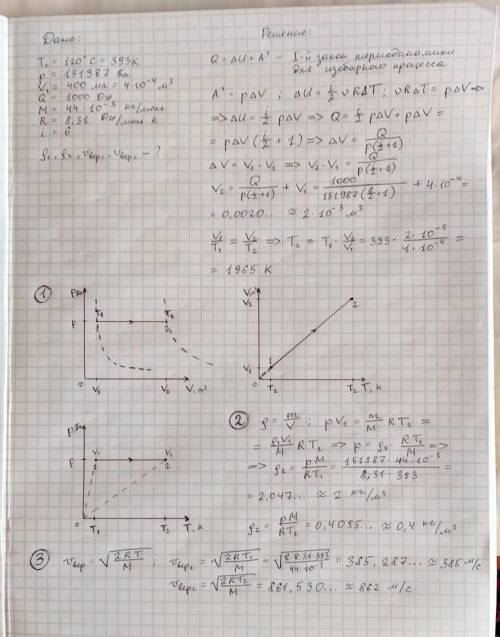 Дано:
T₁ = 120°C = 393K
p = 151987 Па
V₁ = 400 мл = 4·10⁻⁴ м³
Q = 1000 Дж
M = 44·10⁻³ кг/моль
R = 8,31 Дж/моль К
i = 6
ρ₁, ρ₂, vвер₁, vвер₂ — ?
Решение:
Q = ΔU + A' - I-й закон термодинамики
для изобарного процесса
A' = pΔV ; ΔU = i/2 νRΔT; νRΔT = pΔV ⇒
⇒ ΔU = i/2 pΔV ⇒ Q = i/2 pΔV + pΔV =
= pΔV (i/2 + 1) ⇒ ΔV = Q/p(i/2+1)
ΔV = V₂ - V₁ ⇒ V₂ - V₁ = Q/p(i/2+1)
V₂ = Q/p(i/2+1) + V₁ = 1000/151987(6/2+1) + 4·10⁻⁴ =
= 0,0020.. ≈ 2·10⁻³ м³
V₁/T₁ = V₂/T₂ ⇒ T₂ = T₁ · V₂/V₁ = 393 · 2·10⁻³/4·10⁻⁴ =
= 1965 К
①
p, Па
T₁
T₂
p
1
2
0
V₁
V₂
V, м³
V, м³
V₂
2
V₁
1
0
T₁
T₂
T, К
p, Па
V₁
V₂
p
1
2
0
T₁
T₂
T, К
②
ρ = m/V ; pV₁ = m/M RT₁ =
= ρ₁V₁/M RT₁ ⇒ p = ρ₁ · RT₁/M ⇒
⇒ ρ₁ = pM/RT₁ = 151987·44·10⁻³/8,31·393 =
= 2,047... ≈ 2 кг/м³
ρ₂ = pM/RT₂ = 0,4095... ≈ 0,4 кг/м³
③
vвер = √2RT/M ; vвер₁ = √2RT₁/M = √2·8,31·393/44·10⁻³ = 385,287... ≈ 385 м/с
vвер₂ = √2RT₂/M = 861,530... ≈ 862 м/с